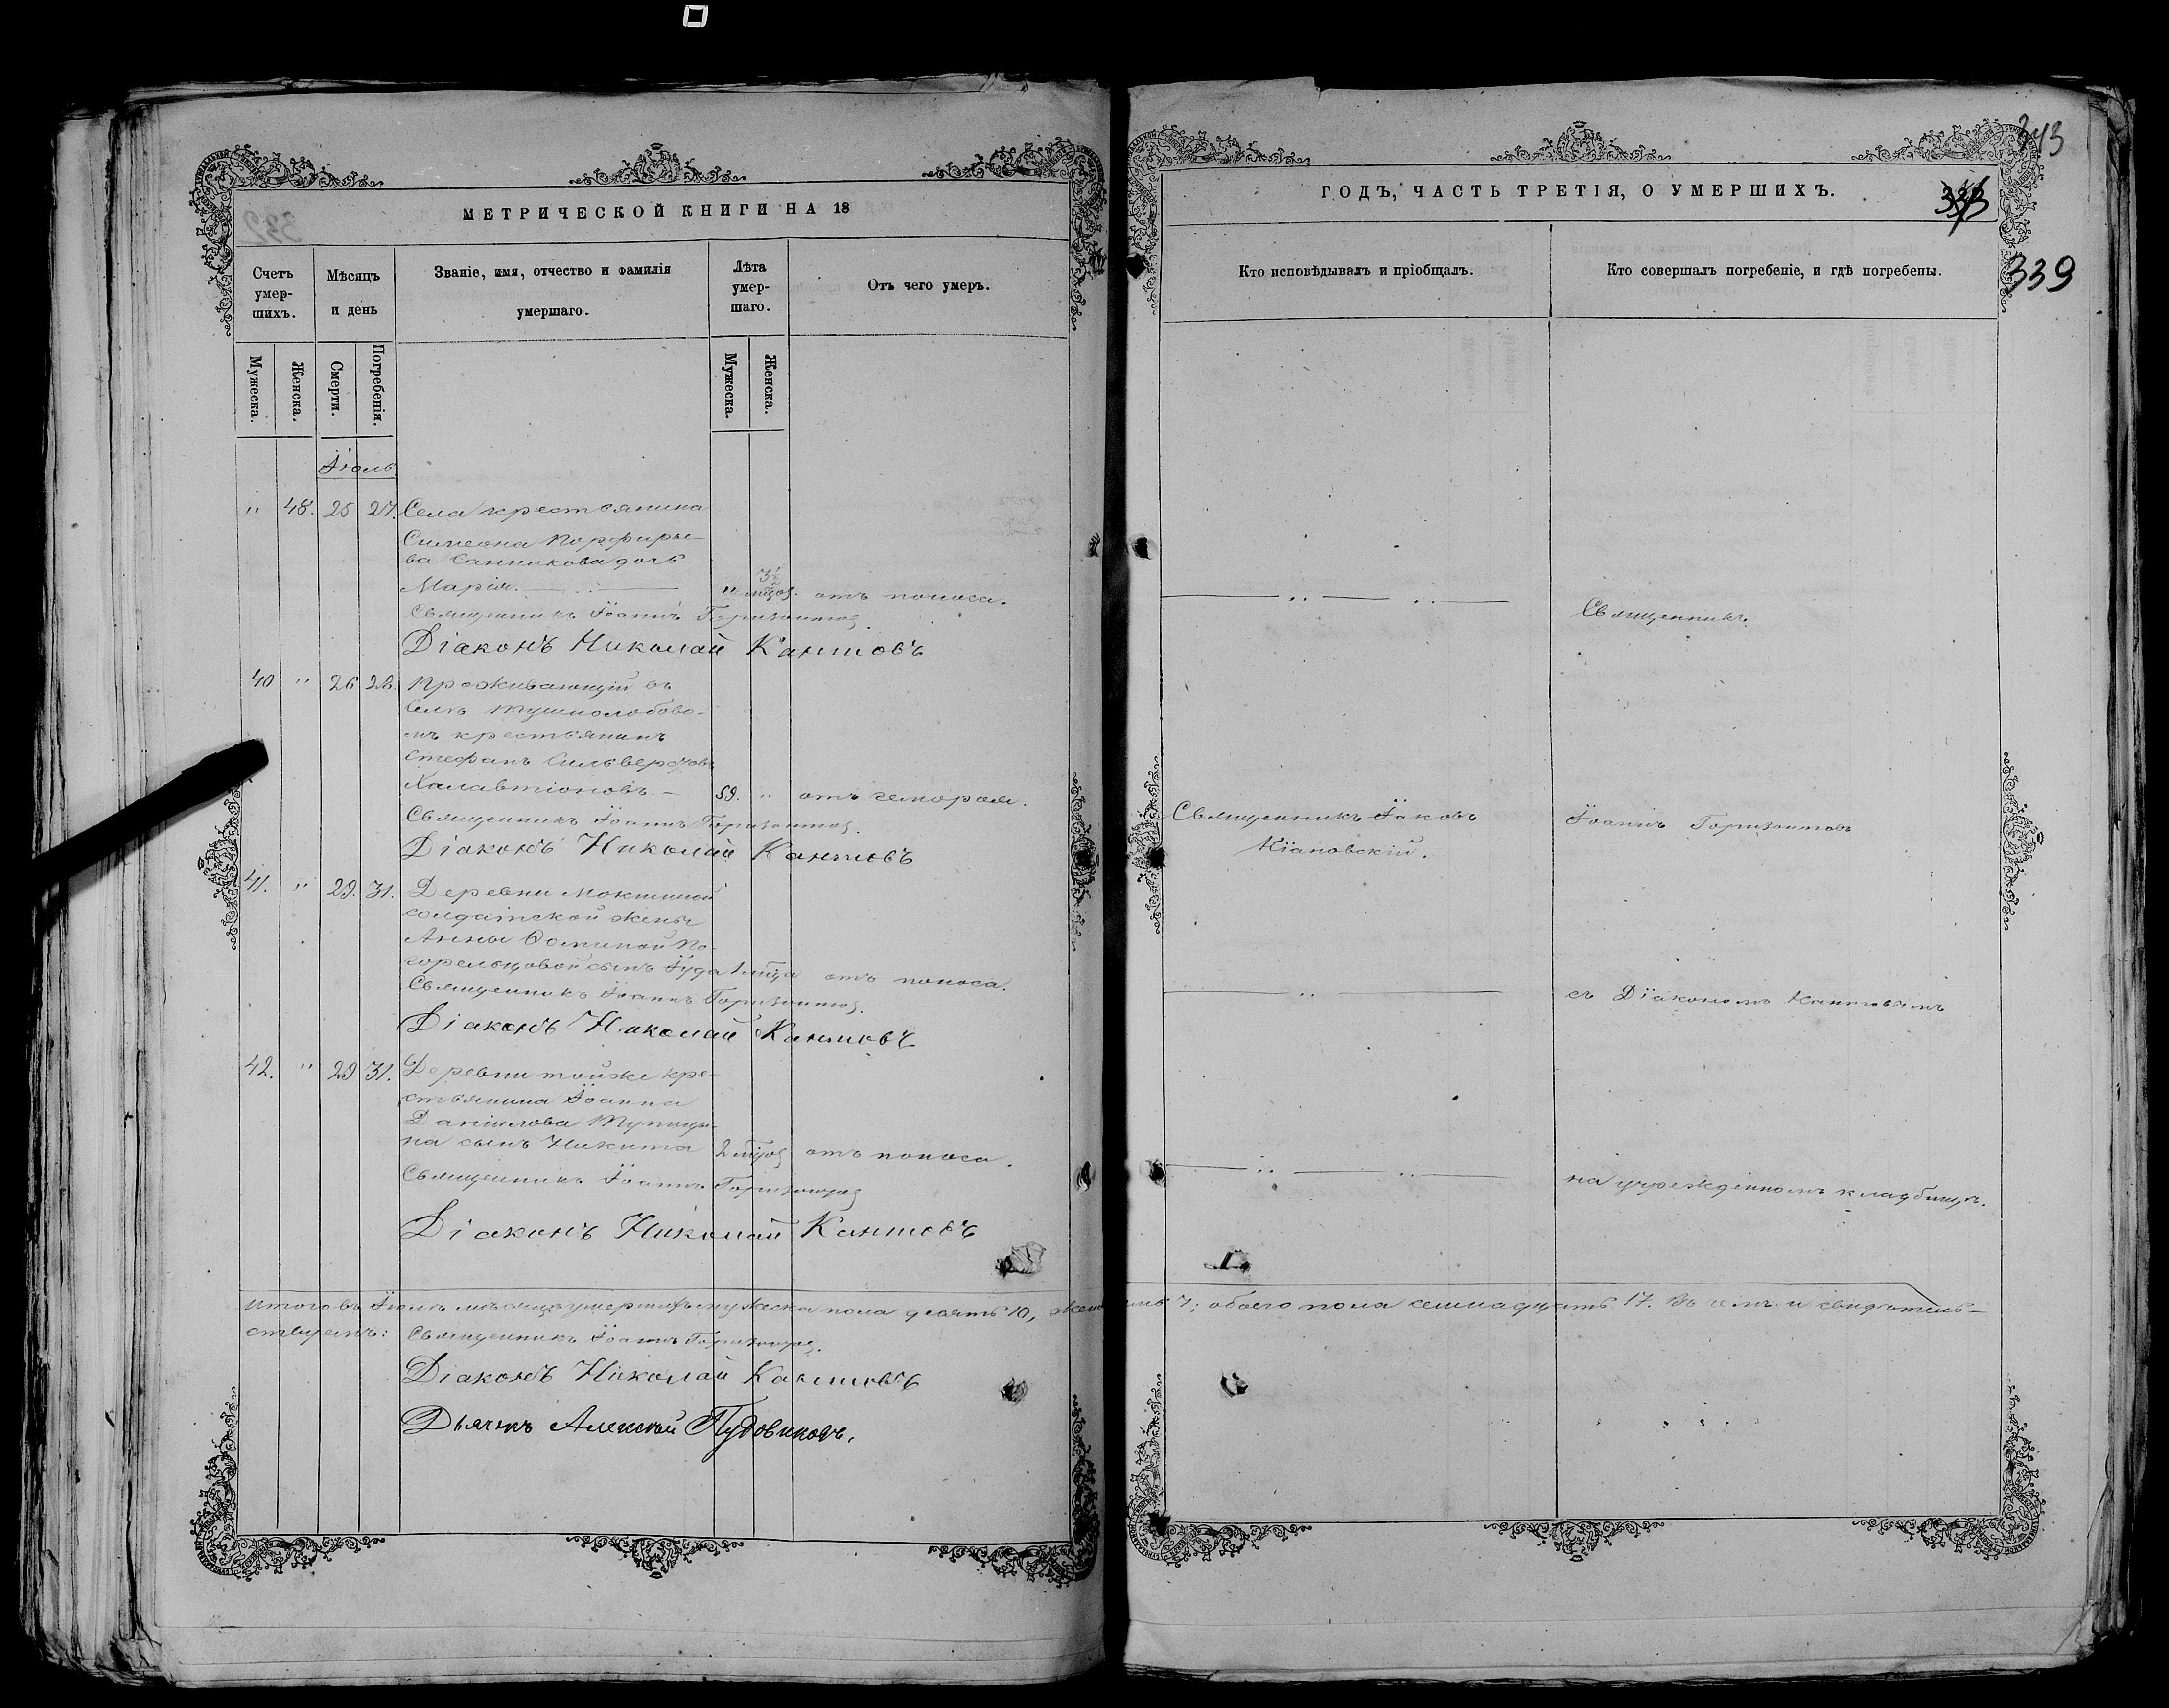 МЕТРИЧЕСКОЙ КНИГИ НА 18
Счетъ умер- шихъ.
Мѣсяцъ и день
Званіе, имя, отчество и фамилія умершаго.
Лѣта умер- шаго.
Отъ чего умеръ.
Мужеска.
Женска.
Смерти.
Погребенія.
Мужеска.
Женска.
Іюль.
" 48. 25 27. Села крестьянина
Симеона Порфирье-
ва Санникова дочь
Марія. " 3½ мцов. отъ поноса.
Священникъ Іоаннъ Горизонтов.
Діаконъ Николай Кантовъ
40 " 26 28. Проживающій въ
Селѣ Тушнолобово-
мъ крестьянинъ
Стефанъ Сильверстовъ
Халавтіоновъ. 59. " отъ гемороя.
Священникъ Іоаннъ Горизонтов.
Діаконъ Николай Кантовъ
41. " 29. 31. Деревни Мокшиной
солдатской жены
Анны Ѳоминой По-
горельцовой сынъ Іуда 1 мца отъ поноса.
Священникъ Іоаннъ Горизонтов.
Діаконъ Николай Кантовъ
42. " 29 31. Деревни тойже кре-
стьянина Іоанна
Даніилова Тупицы-
на сынъ Никита 2 мцов отъ поноса.
Священникъ Іоаннъ Горизонтов
Діаконъ Николай Кантовъ
Итого въ Іюлѣ мѣсяцѣ умершихъ мужеска пола десять 10, жен
ствуемъ: Священникъ Іоаннъ Горизонтов.
Діаконъ Николай Кантовъ
Дьячекъ Алексѣй Пудовиковъ.
343
ГОДЪ, ЧАСТЬ ТРЕТІЯ, О УМЕРШИХЪ.
339
Кто исповѣдывалъ и пріобщалъ.
Кто совершалъ погребеніе, и гдѣ погребены.
Священникъ
Священникъ Іаковъ
Кіановскій.
Іоаннъ Горизонтовъ
съ Діакономъ Кантовымъ
на учрежденномъ кладбищѣ.
7; обоего пола семнадцать 17. Въ чемъ и свидѣтель-